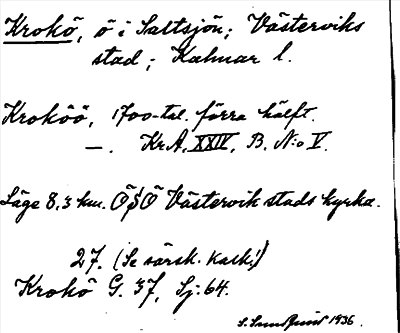 Krokö, ö i Saltsjön; Västerviks
stad; Kalmar l.
Kroköö, 1700-tal. förra hälft.
—. Kr.A. XXIV, B. N:o V.
Läge 8,3 km. ÖSÖ Västervik stads kyrka.
27. (Se särsk. kalk!)
Krokö G. 37, Sj: 64.
S. Sundquist 1936.